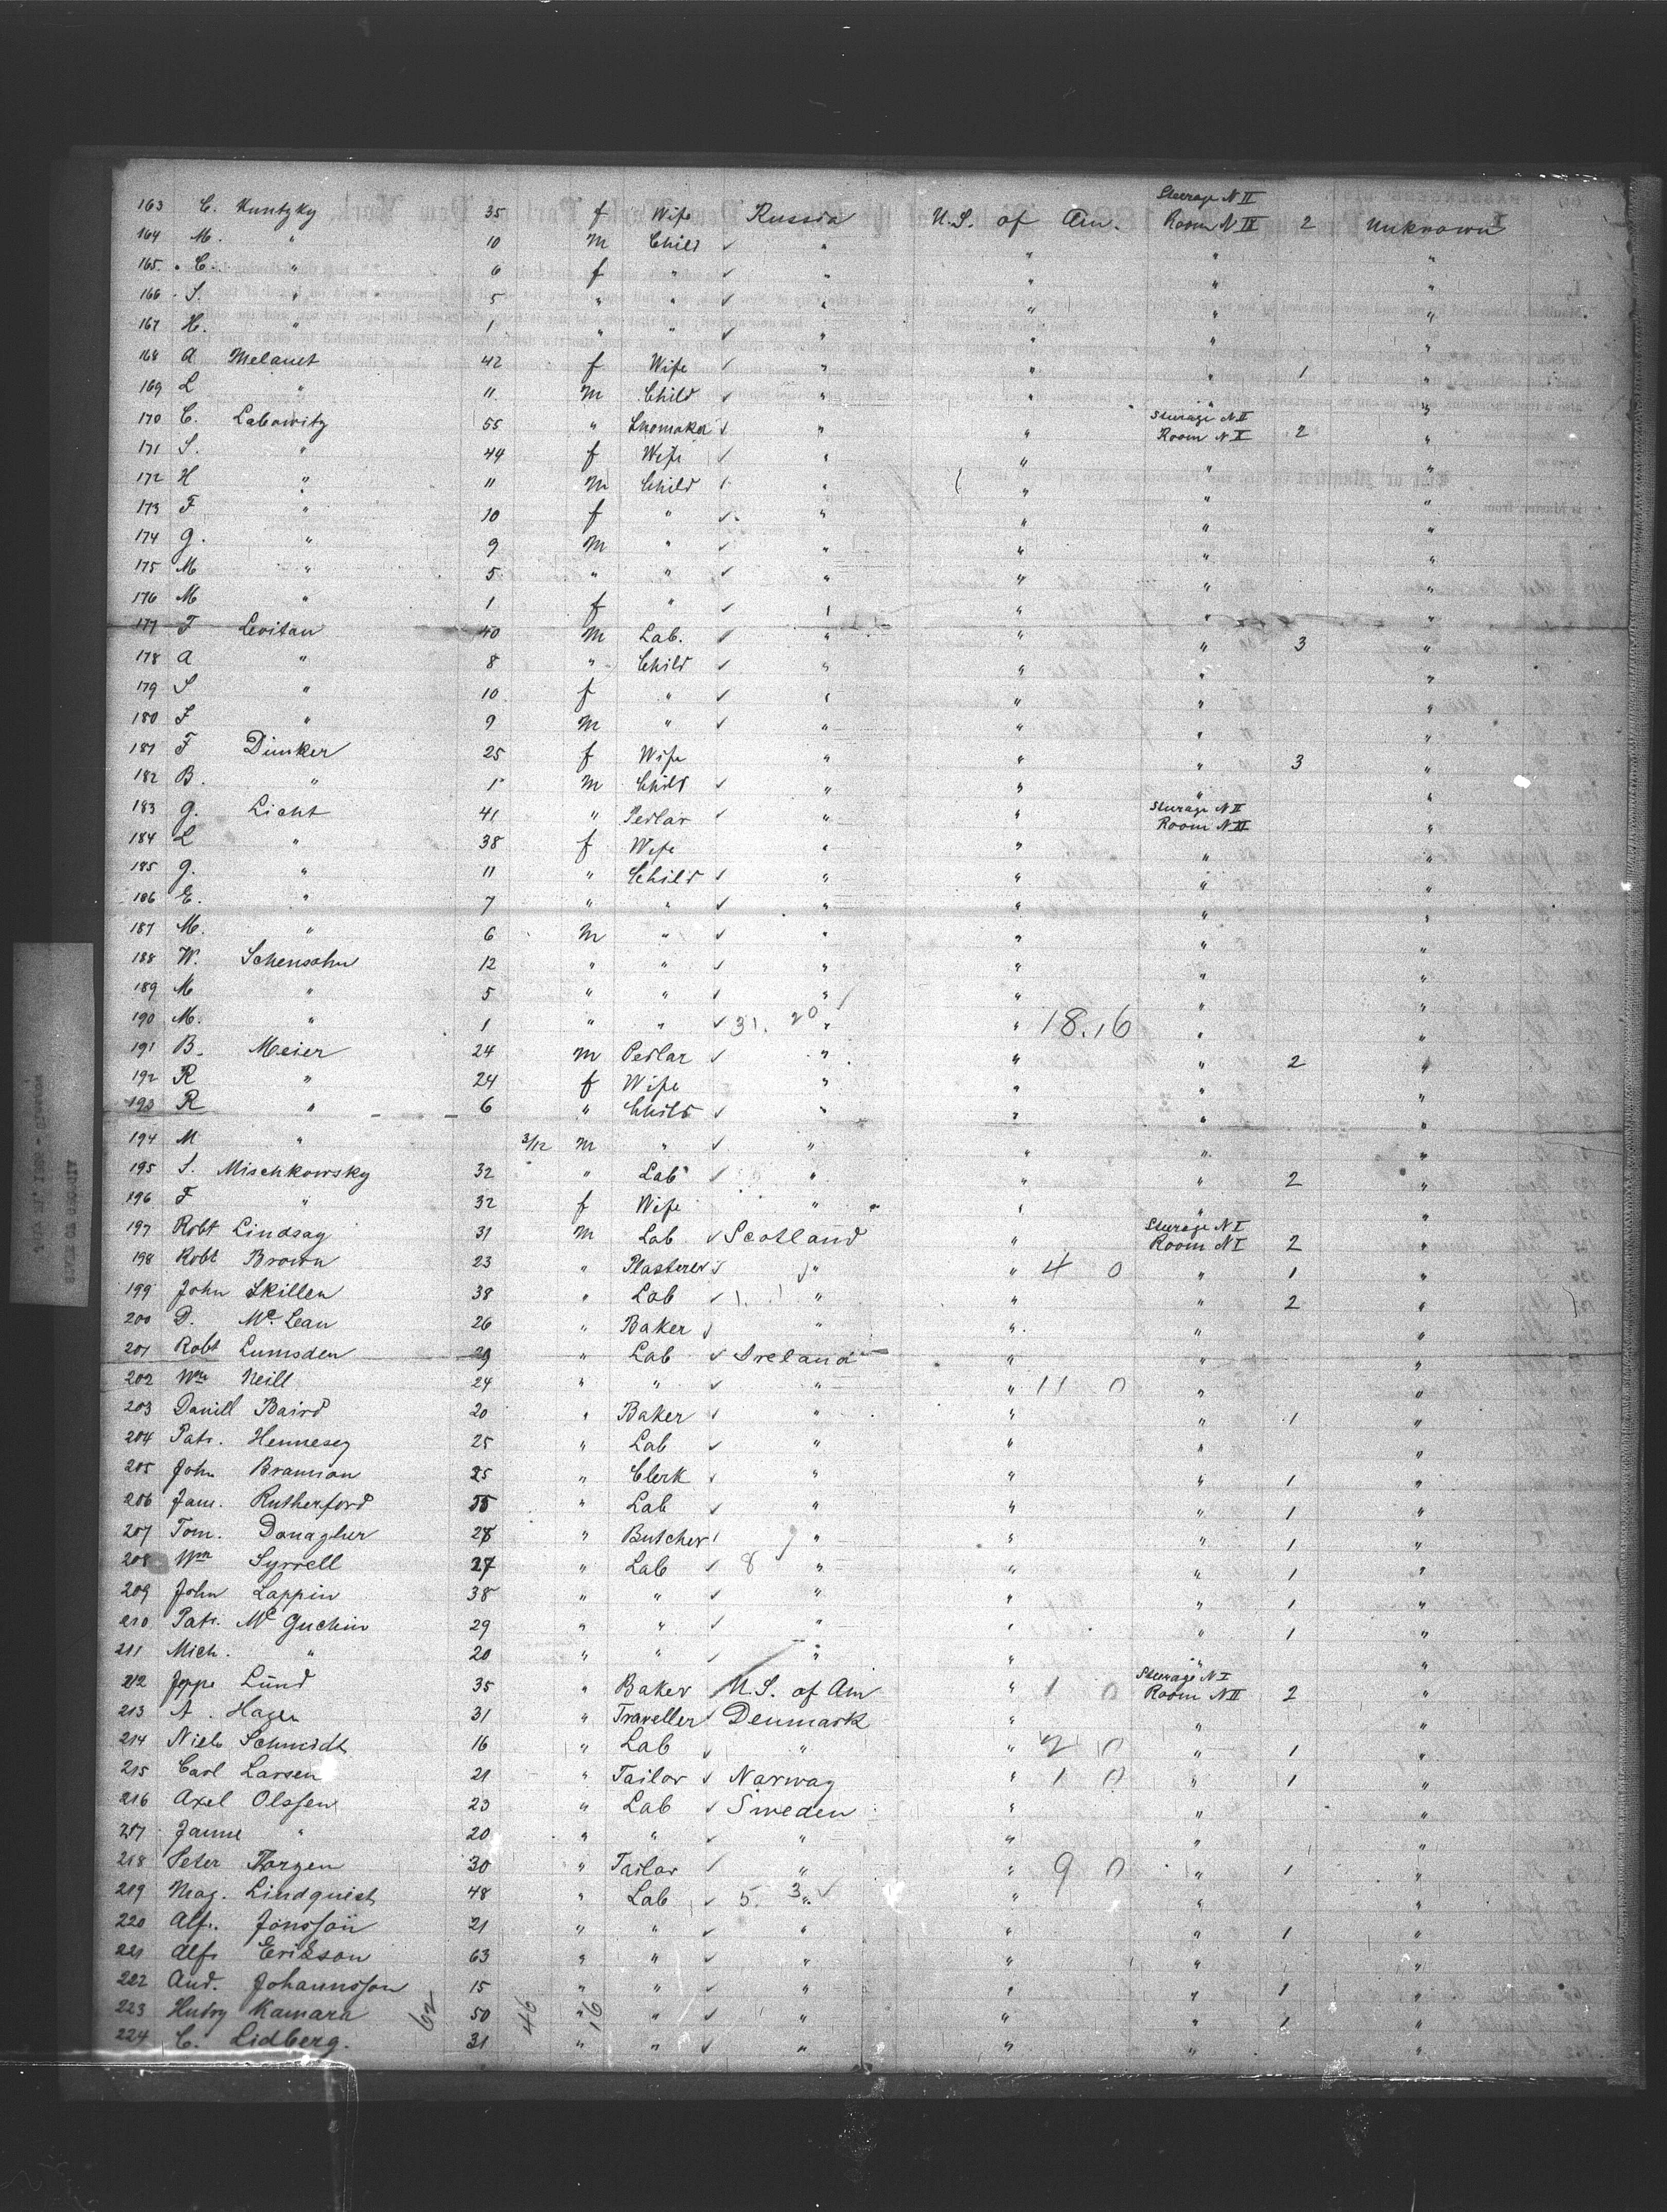 163 C. Kuntzky 35 f Wife Russia U.S. of Am. Steerage N II Room N IX 2 Unknown
164 M. " 10 m Child ✓ " " " "
165 . C. " 6 f " ✓ " " " "
166 . S. " 5 " " ✓ " " " "
167 H. " 1 " " ✓ " " " "
168 A Melanet 42 f Wife ✓ " " " 1 "
169 L " 11 m Child ✓ " " " "
170 C. Labowitz 55 " Shomaker ✓ " " Steerage N II Room N X 2 "
171 S. " 44 f Wife ✓ " " " "
172 H " 11 m Child " " " "
173 F " 10 f " ✓ " " " "
174 G. " 9 m " ✓ " " " "
175 M " 5 " " ✓ " " " "
176 M " 1 f " ✓ " " " "
177 F Levitan 40 m Lab. ✓ " " " 3 "
178 A " 8 " Child ✓ " " " "
179 S " 10 f " ✓ " " " "
180 F " 9 m " ✓ " " " "
181 F Dunker 25 f Wife " " " 3 "
182 B. " 1 m Child ✓ " " " "
183 G. Licht 41 " Pedlar ✓ " " Steerage N II Room N XI "
184 L " 38 f Wife " " " "
185 G. " 11 " Child ✓ " " " "
186 E. " 7 " " ✓ " " " "
187 M. " 6 m " ✓ " " " "
188 W. Schensohn 12 " " ✓ " " " "
189 M " 5 " " ✓ " " " "
190 M. " 1 " " ✓ 31. 20 " " 18.16 " "
191 B. Meier 24 m Pedlar ✓ " " " 2 "
192 R " 24 f Wife " " " "
193 R " 6 " Child ✓ " " " "
194 M " 3/12 m " ✓ " " " "
195 S. Mischkowsky 32 " Lab ✓ " " " 2 "
196 F " 32 f Wife " " " "
197 Robt Lindsay 31 m Lab ✓ Scotland " Steerage N I Room N I 2 "
198 Robt Brown 23 " Plasterer ✓ " " 4 0 " 1 "
199 John Skillen 38 " Lab ✓ " " " 2 "
200 D. Mc. Lean 26 " Baker ✓ " " " "
201 Robt Lumsden 29 " Lab ✓ Ireland " " "
202 Wm Neill 24 " " ✓ " " 11 0 " "
203 Danill Baird 20 " Baker ✓ " " " 1 "
204 Patr. Hennesey 25 " Lab ✓ " " " "
205 John Brannon 25 " Clerk ✓ " " " 1 "
206 Jam. Rutherford 55 " Lab ✓ " " " 1 "
207 Tom. Donagher 28 " Butcher " " " 1 "
208 Wm Syrrell 27 " Lab ✓ 8 " " " 1 "
209 John Lappin 38 " " ✓ " " " 1 "
210 Patr. Mc Guchin 29 " " ✓ " " " 1 "
211 Mich. " 20 " " ✓ " " " "
212 Jeppe Lund 35 " Baker U.S. of Am " 1 0 Steerage N I Room N II 2 "
213 A. Hagen 31 " Traveller ✓ Denmark " " "
214 Niels Schmidt 16 " Lab ✓ " " 2 0 " 1 "
215 Carl Larsen 21 " Tailor ✓ Norway " 1 0 " 1 "
216 Axel Olssen 23 " Lab ✓ Sweden " " "
217 Janne " 20 " " ✓ " " " "
218 Peter Torgen 30 " Tailor ✓ " " 9 0 " 1 "
219 Mag. Lindquist 48 " Lab ✓ 5. 3 ✓ " " " "
220 Alfr. Jonsson 21 " " ✓ " " " 1 "
221 Alfr Erikson 63 " " ✓ " " " "
222 And. Johannsson 15 " " ✓ " " " 1 "
223 Kamara 62 50 46 " 16 " ✓ " " " 1 "
224 C. Lidberg. 31 " " ✓ " " " "